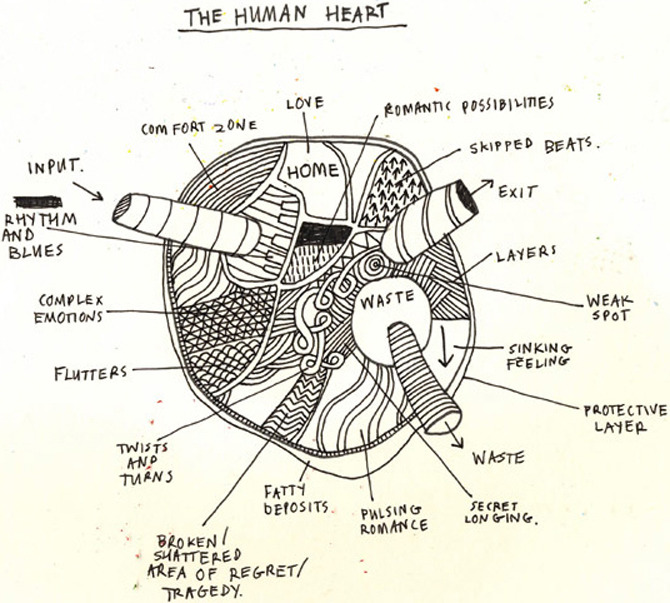 THE HUMAN HEART
LOVE
ROMANTIC POSSIBILITIES
COMFORT ZONE
SKIPPED BEATS.
INPUT.
HOME
EXIT
RHYTHM
AND
BLUES
LAYERS
COMPLEX
EMOTIONS
WASTE
WEAK
SPOT
SINKING
FEELING
FLUTTERS
PROTECTIVE
LAYER
TWISTS
AND
TURNS
WASTE
FATTY
DEPOSITS
PULSING
ROMANCE
SECRET
LONGING.
BROKEN/
SHATTERED
AREA OF REGRET/
TRAGEDY.